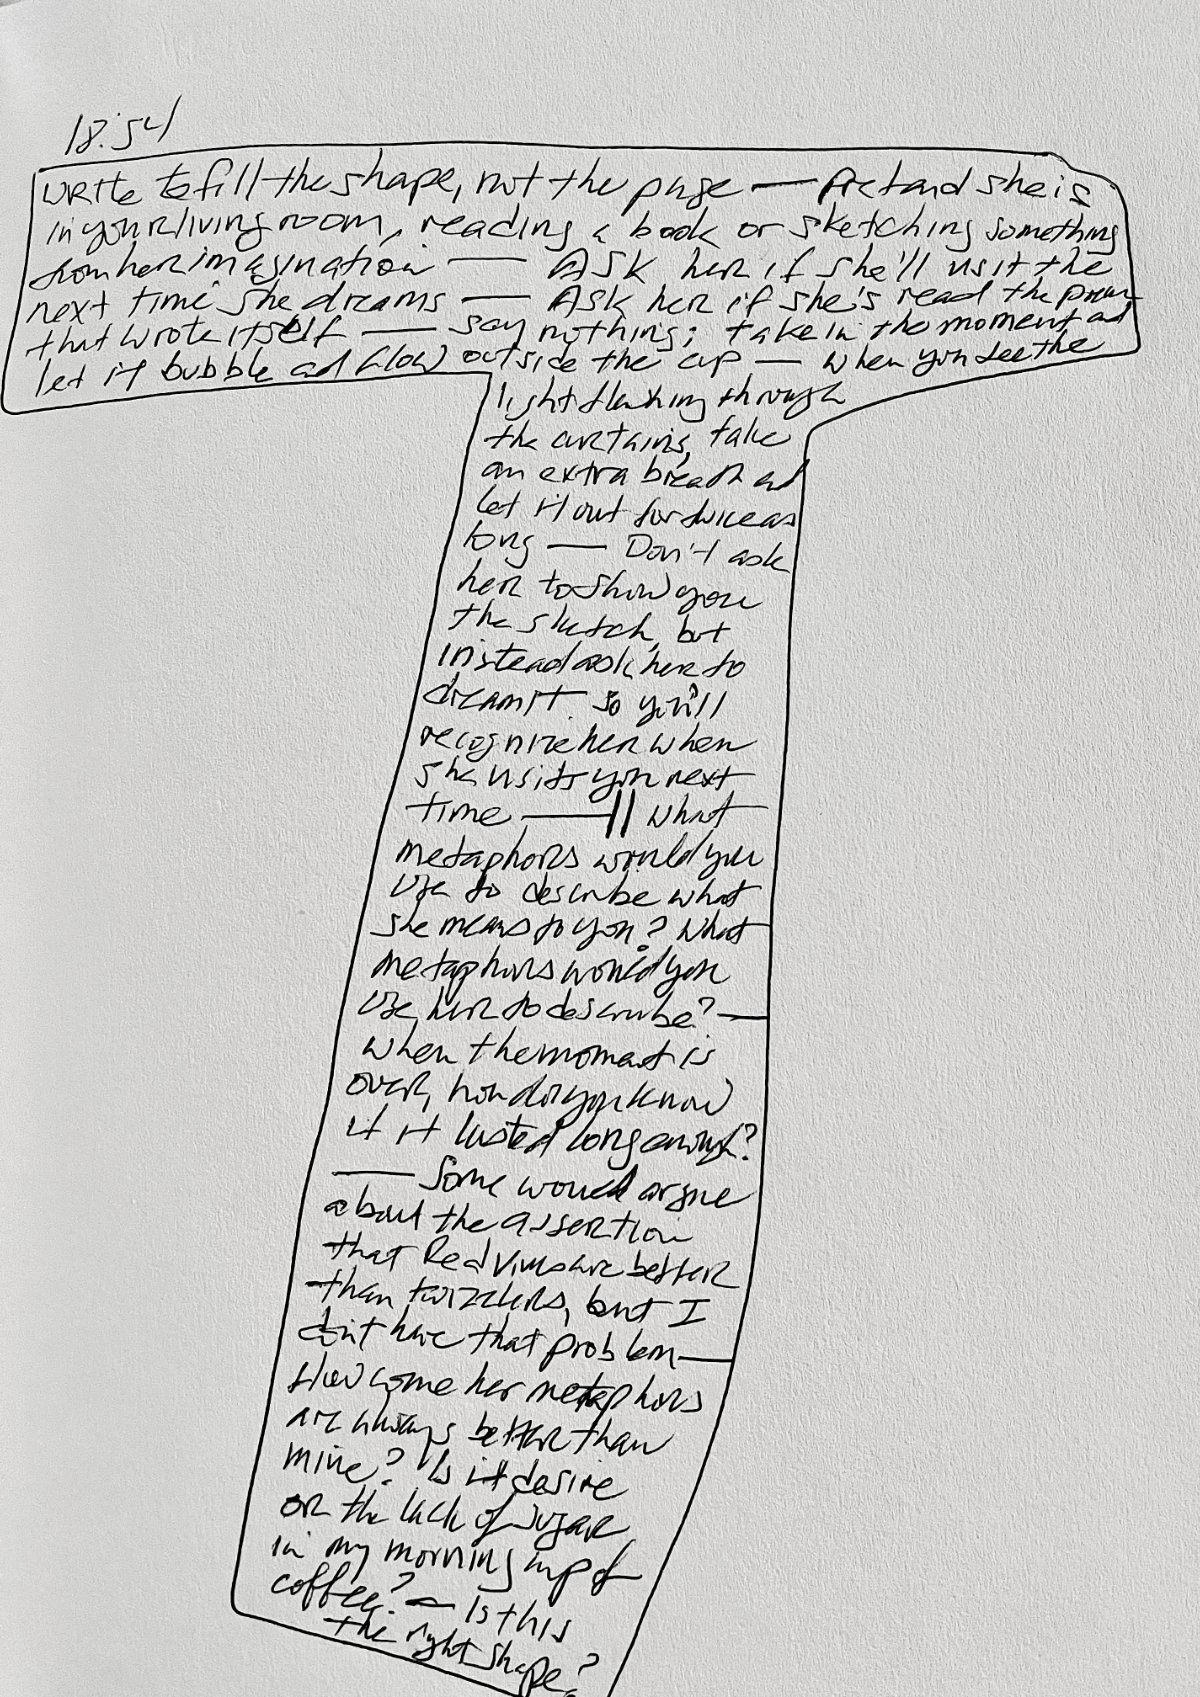 18:54
Write to fill the shape, not the page — Pretend she is
in your living room, reading a book or sketching something
from her imagination — Ask her if she'll visit the
next time she dreams — Ask her if she's read the poem
that wrote itself — say nothing; take in the moment and
let it bubble and flow outside the cup — when you see the
light flashing through
the curtains, take
an extra breath and
let it out for twice as
long — Don't ask
her to show you
the sketch, but
instead ask her to
dream it so you'll
recognize her when
she visits you next
time — || what
metaphors would you
use to describe what
she means to you? What
metaphors would you
use her to describe? —
when the moment is
over, how do you know
if it lasted long enough?
— Some would argue
about the assertion
that Red Vines are better
than twizzlers, but I
don't have that problem —
How come her metaphors
are always better than
mine? Is it desire
or the lack of sugar
in my morning cup of
coffee? — Is this
the right shape?